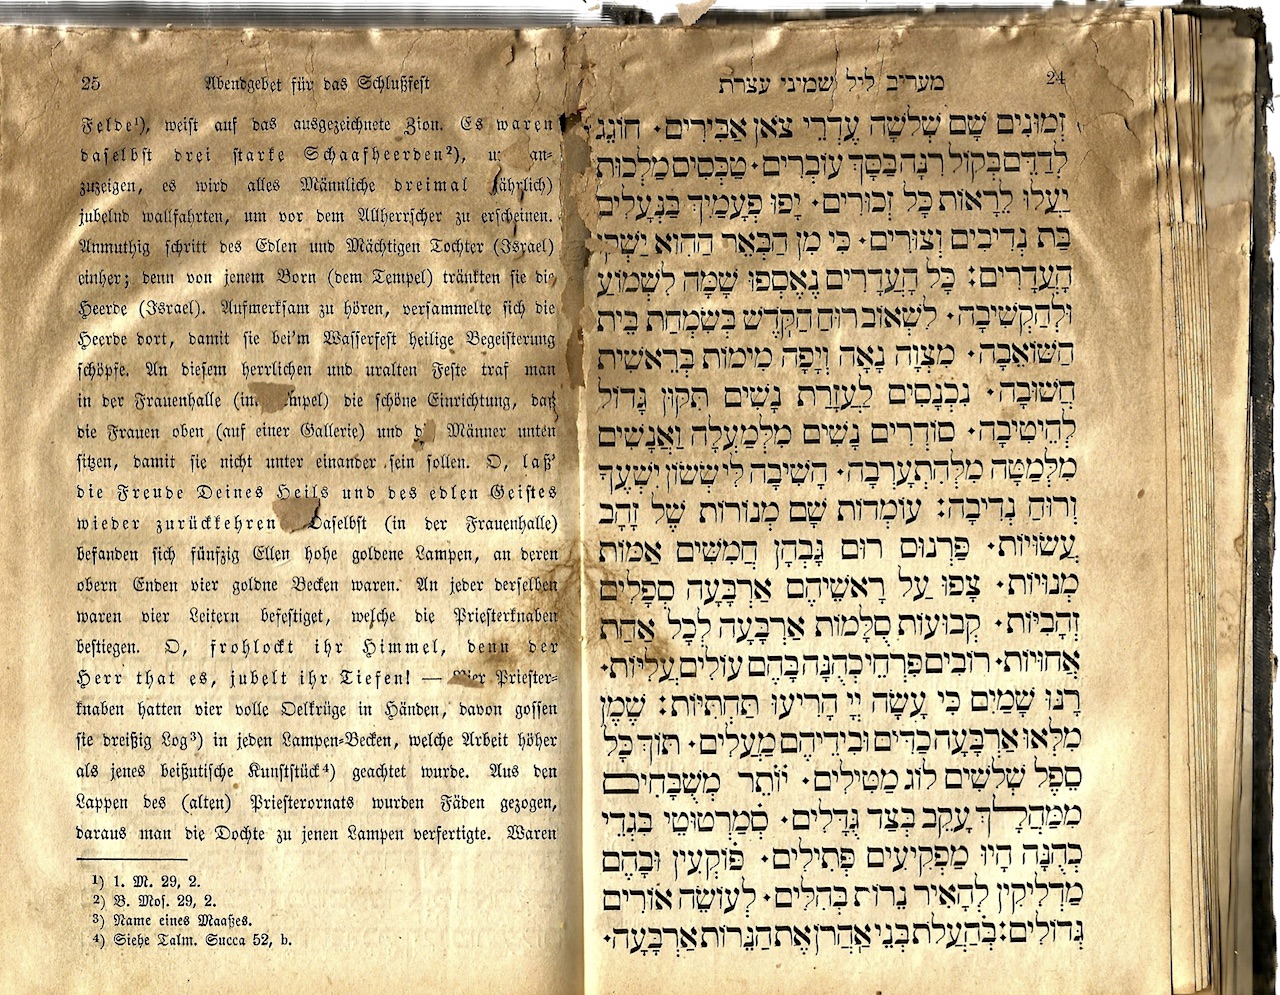 מעריב ליל שמיני עצרת 24
זְמוּנִים שָׁם שְׁלשָׁה עֶדְרֵי צֹאן אַבִּירִים· חוֹגֵג
לְהַדֵּם בְּקוֹל רִנָּה בַּסָּךְ עוֹבְרִים· טַכְסִים מַלְכוּת
יַעֲלוּ לֵרָאוֹת כָּל זְכוּרִים· יָפוּ פְעָמַיִךְ בַּנְּעָלִים
בַּת נְדִיבִים וְצוּרִים· כִּי מִן הַבְּאֵר הַהוּא יַשְׁקוּ
הָעֲדָרִים: כָּל הָעֲדָרִים נֶאֶסְפוּ שָׁמָּה לִשְׁמוֹעַ
וּלְהַקְשִׁיבָה· לִשְׁאוֹב רוּחַ הַקֹּדֶשׁ בְּשִׂמְחַת בֵּית
הַשּׁוֹאֵבָה· מִצְוָה נָאָה וְיָפָה מִימוֹת בְּרֵאשִׁית
חֲשׁוּבָה· נִכְנָסִים לְעֶזְרַת נָשִׁים תִּקּוּן גָּדוֹל
לְהֵיטִיבָה· סוֹדְרִים נָשִׁים מִלְמַעְלָה וַאֲנָשִׁים
מִלְּמַטָּה מִלְּהִתְעָרְבָה· הָשִׁיבָה לִּי שְׂשׂוֹן יִשְׁעֶךָ
וְרוּחַ נְדִיבָה: עוֹמְדוֹת שָׁם מְנוֹרוֹת שֶׁל זָהָב
עֲשׂוּיוֹת· פַּרְנוּם רוּם גָּבְהָן חֲמִשִּׁים אַמּוֹת
מְנוּיוֹת· צָפוּ עַל רָאשֵׁיהֶם אַרְבָּעָה סְפָלִים
זְהָבִיּוֹת· קְבוּעוֹת סֻלָּמוֹת אַרְבָּעָה לְכָל אַחַת
אֲחוּיוֹת· רוֹבִים פִּרְחֵי כְהֻנָּה בָּהֶם עוֹלִים עֲלִיּוֹת·
רָנּוּ שָׁמַיִם כִּי עָשָׂה יְיָ הָרִיעוּ תַּחְתִּיּוֹת: שֶׁמֶן
מִלְאוּ אַרְבָּעָה כַדִּים וּבִידֵיהֶם מַעֲלִים· תּוֹךְ כָּל
סֵפֶל שְׁלשִׁים לוֹג מַטִּילִים· יוֹתֵר מְשֻׁבָּחִים
מִמַּהֲלָךְ עָקֵב בְּצַד גֻּדָּלִים· סְמַרְטוּטֵי בִגְדֵי
כְהֻנָּה הָיוּ מַפְקִיעִים פְּתִילִים· פּוֹקְעִין וּבָהֶם
מַדְלִיקִין לְהָאִיר נֵרוֹת בְּהִלִּים· לְעוֹשֵׂה אוֹרִים
גְּדוֹלִים: בְּהַעֲלֹת בְּנֵי אַהֲרֹן אֶת הַנֵּרוֹת אַרְבָּעָה·
25 Abendgebet für das Schlußfest
Felde¹), weist auf das ausgezeichnete Zion. Es waren
daselbst drei starke Schaafheerden²), u: an-
zuzeigen, es wird alles Männliche dreimal jährlich)
jubelnd wallfahrten, um vor dem Allherrscher zu erscheinen.
Anmuthig schritt des Edlen und Mächtigen Tochter (Israel)
einher; denn von jenem Born (dem Tempel) tränkten sie die
Heerde (Israel). Aufmerksam zu hören, versammelte sich die
Heerde dort, damit sie bei'm Wasserfest heilige Begeisterung
schöpfe. An diesem herrlichen und uralten Feste traf man
in der Frauenhalle (im mpel) die schöne Einrichtung, daß
die Frauen oben (auf einer Gallerie) und d Männer unten
sitzen, damit sie nicht unter einander sein sollen. O, laß'
die Freude Deines Heils und des edlen Geistes
wieder zurückkehren Daselbst (in der Frauenhalle)
befanden sich fünfzig Ellen hohe goldene Lampen, an deren
obern Enden vier goldne Becken waren. An jeder derselben
waren vier Leitern befestiget, welche die Priesterknaben
bestiegen. O, frohlockt ihr Himmel, denn der
Herr that es, jubelt ihr Tiefen! — Vier Priester-
knaben hatten vier volle Oelkrüge in Händen, davon gossen
sie dreißig Log³) in jeden Lampen-Becken, welche Arbeit höher
als jenes beißutische Kunststück⁴) geachtet wurde. Aus den
Lappen des (alten) Priesterornats wurden Fäden gezogen,
daraus man die Dochte zu jenen Lampen verfertigte. Waren
¹) 1. M. 29, 2.
²) B. Mos. 29, 2.
³) Name eines Maaßes.
⁴) Siehe Talm. Succa 52, b.